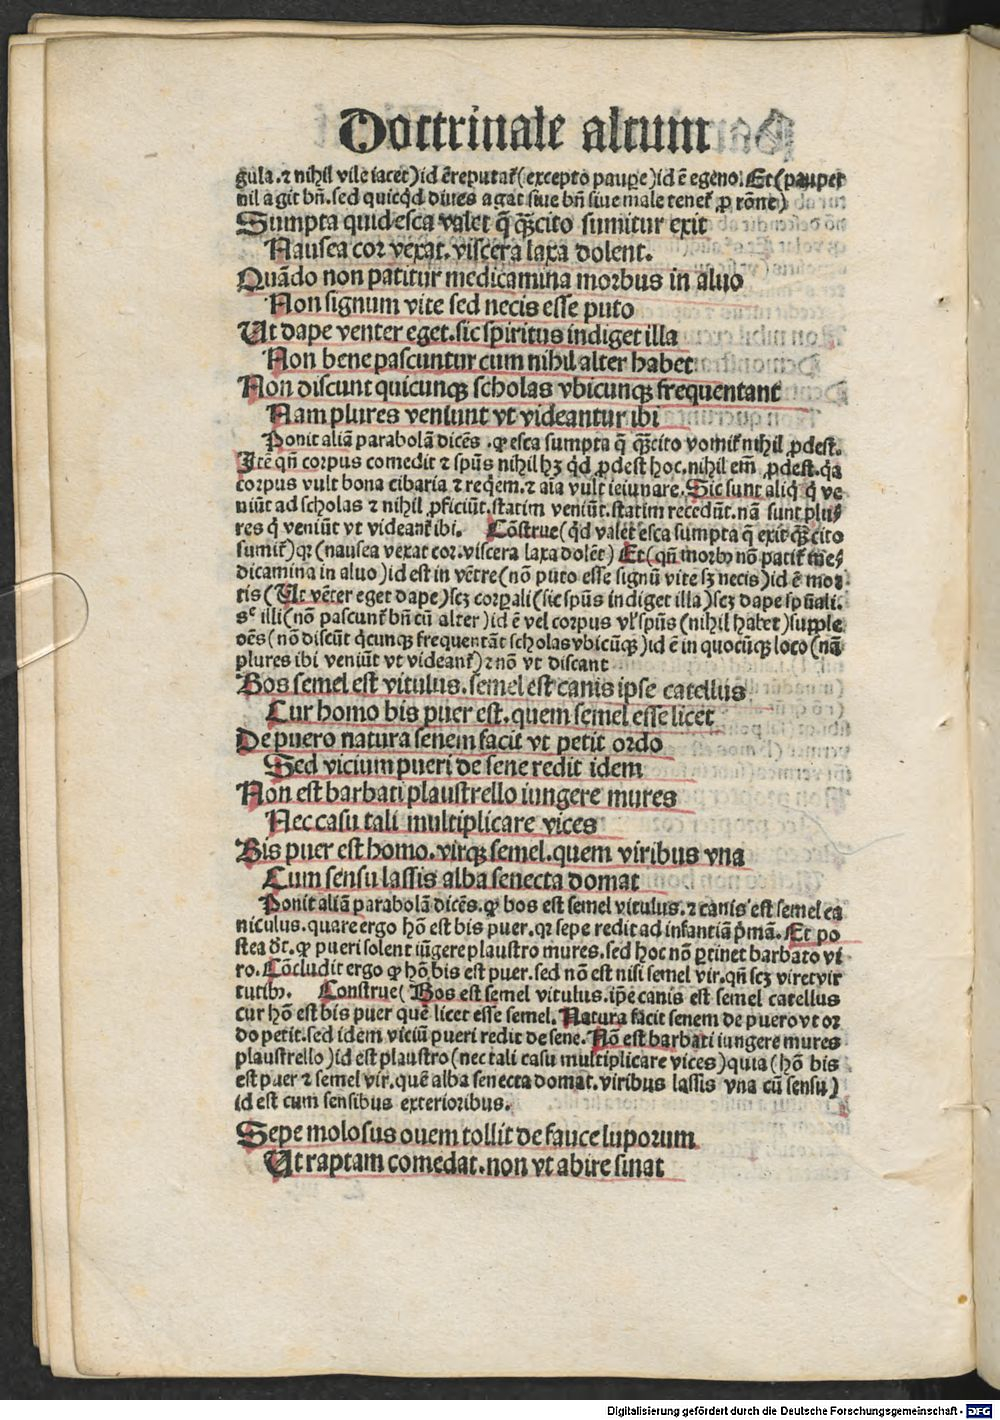 Doctrinale altum
gula.⁊ nihil vile iacet)id ē reputat᷑(excepto paupe̱)id ē egeno.Et(pauper
nil agit bn̄.sed quicq̇d diues agat siue bn̄ siue male tenet᷑ ꝓ rōne)
Sumpta quid esca valet q̄ q̈̄cito sumitur exit
Nausea cor vexat.viscera laxa dolent.
Quādo non patitur medicamina morbus in aluo
Non signum vite sed necis esse puto
Ut dape venter eget.sic spiritus indiget illa
Non bene pascuntur cum nihil alter habet
Non discunt quicunqꝫ scholas vbicunqꝫ frequentant
Nam plures veniunt vt videantur ibi
Ponit aliā parabolā dicēs .ꝙ esca sumpta q̄ q̈̄cito vomit᷑ nihil ꝓdest.
Itē qn̄ corpus comedit ⁊ spūs nihil hꝫ q̇d ꝓdest hoc.nihil em̄ ꝓdest.q̇a
corpus vult bona cibaria ⁊ req̇em.⁊ aīa vult ieiunare.Sic sunt aliq̇ q̇ ve
niūt ad scholas ⁊ nihil ꝓficiūt.statim veniūt.statim recedūt.nā sunt plu⸗
res q̇ veniūt vt videant᷑ ibi. Cōstrue(q̇d valet esca sumpta q̄ exit q̈̄cito
sumit᷑)qꝛ(nausea vexat cor.viscera laxa dolēt) Et(qn̄ morbꝰ nō patit᷑ me⸗
dicamina in aluo)id est in vētre(nō puto esse signū vite sꝫ necis)id ē mor⸗
tis(Ut vēter eget dape)scꝫ corꝑali(sic spūs indiget illa)scꝫ dape spūali.
sᶜ illi(nō pascunt᷑ bn̄ cū alter)id ē vel corpus vl᷑ spūs(nihil habet)supple
oēs(nō discūt q̇cunqꝫ frequentāt scholas vbicūqꝫ)id ē in quocūqꝫ loco(nā
plures ibi veniūt vt videant᷑)⁊ nō vt discant
Bos semel est vitulus.semel est canis ipse catellus
Cur homo bis puer est.quem semel esse licet
De puero natura senem facit vt petit ordo
Sed vicium pueri de sene redit idem
Non est barbati plaustrello iungere mures
Nec casu tali multiplicare vices
Bis puer est homo.virqꝫ semel.quem viribus vna
Cum sensu lassis alba senecta domat
Ponit aliā parabolā dicēs.ꝙ bos est semel vitulus.⁊ canis est semel ca
niculus.quare ergo hō est bis puer.qꝛ sepe redit ad infantiā p̄mā.Et po
stea d̄t.ꝙ pueri solent iūgere plaustro mures.sed hoc nō ꝑtinet barbato vi
ro.Cōcludit ergo ꝙ hō bis est puer.sed nō est nisi semel vir.qn̄ scꝫ viret vir
tutibꝰ. Construe(Bos est semel vitulus.ip̄e canis est semel catellus
cur hō est bis puer quē licet esse semel.Natura facit senem de puero vt or
do petit.sed idem viciū pueri redit de sene.Nō est barbati iungere mures
plaustrello)id est plaustro(nec tali casu multiplicare vices)quia(hō bis
est puer ⁊ semel vir.quē alba senecta domat.viribus lassis vna cū sensu)
id est cum sensibus exterioribus.
Sepe molosus ouem tollit de fauce luporum
Ut raptam comedat.non vt abire sinat
Digitalisierung gefördert durch die Deutsche Forschungsgemeinschaft - DFG